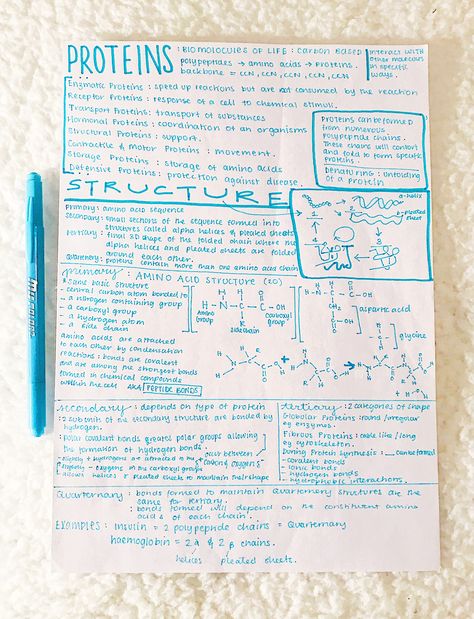 PROTEINS
: BIOMOLOCULES OF LIFE : CARBON BASED
polypeptides → amino acids → Proteins.
backbone = CCN, CCN, CCN, CCN, CCN
interact with other molecules in specific ways.
Enzymatic Proteins : speed up reactions but are not consumed by the reaction
Receptor Proteins : response of a cell to chemical stimuli.
Transport Proteins : transport of substances
Hormonal Proteins : coordination of an organisms
Structural Proteins : support.
Contractile & Motor Proteins : movement.
Storage Proteins : storage of amino acids
Defensive Proteins : protection against disease.
Proteins can be formed
from numerous
polypeptide chains.
These chains will contort
and fold to form specific
proteins.
DENATURING : unfolding
of a protein
STRUCTURE
Primary : amino acid sequence
Secondary : small sections of the sequence formed into
structures called alpha helices & pleated sheets
Tertiary : final 3D shape of the folded chain where the
alpha helices and pleated sheets are folded
around each other.
Quaternary : proteins contain more than one amino acid chain
α-helix
β-pleated
sheet
1
2
3
4
primary : AMINO ACID STRUCTURE (20)
* same basic structure
- central carbon atom bonded to
- a nitrogen containing group
- a carboxyl group
- a hydrogen atom
- a side chain
amino acids are attached
to each other by condensation
reactions : bonds are covalent
and are among the strongest bonds
formed in chemical compounds
within the cell AKA PEPTIDE BONDS
H - N - C - C - OH
Amino
group
sidechain
carboxyl
group
aspartic acid
glycine
secondary : depends on type of protein
: 2 subunits of the secondary structure are bonded by
hydrogen.
: polar covalent bonds creates polar groups allowing
the formation of hydrogen bonds.
: slightly + hydrogens are attracted to the
slightly - oxygens in the carboxyl groups
: allows helices & pleated sheets to maintain their shape
tertiary : 2 categories of shape
Globular Proteins : round/irregular
eg enzymes.
Fibrous Proteins : cable like/long
eg cytoskeleton.
During Protein Synthesis : can be formed
- covalent bonds
- ionic bonds
- hydrogen bonds
- hydrophobic interactions.
Quarternary : bonds formed to maintain Quarternery structures are the
same for tertiary.
: bonds formed will depend on the constituent amino
acids of each chain.
EXAMPLES : Insulin = 2 polypeptide chains = Quarternary
haemoglobin = 2α & 2β chains.
helices pleated sheets.